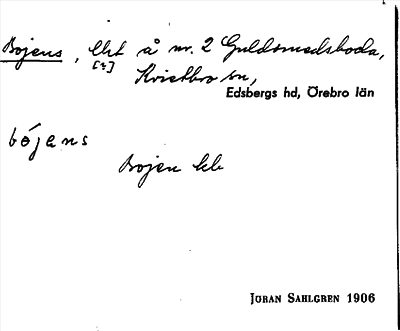 Bojens, lht å nr. 2 Guldsmedsboda,
[?]
Kvistbro sn,
Edsbergs hd, Örebro län
bójens
Bojen
JÖRAN SAHLGREN 1906